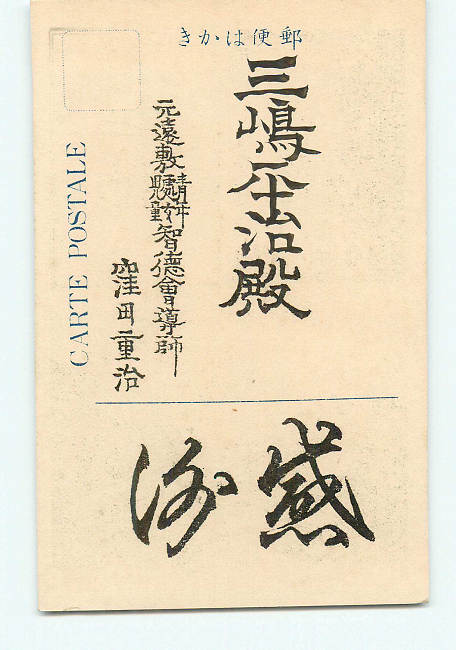 郵便はかき
三嶋治殿
元遠敷智德會導師
窪田重治
感謝
CARTE POSTALE